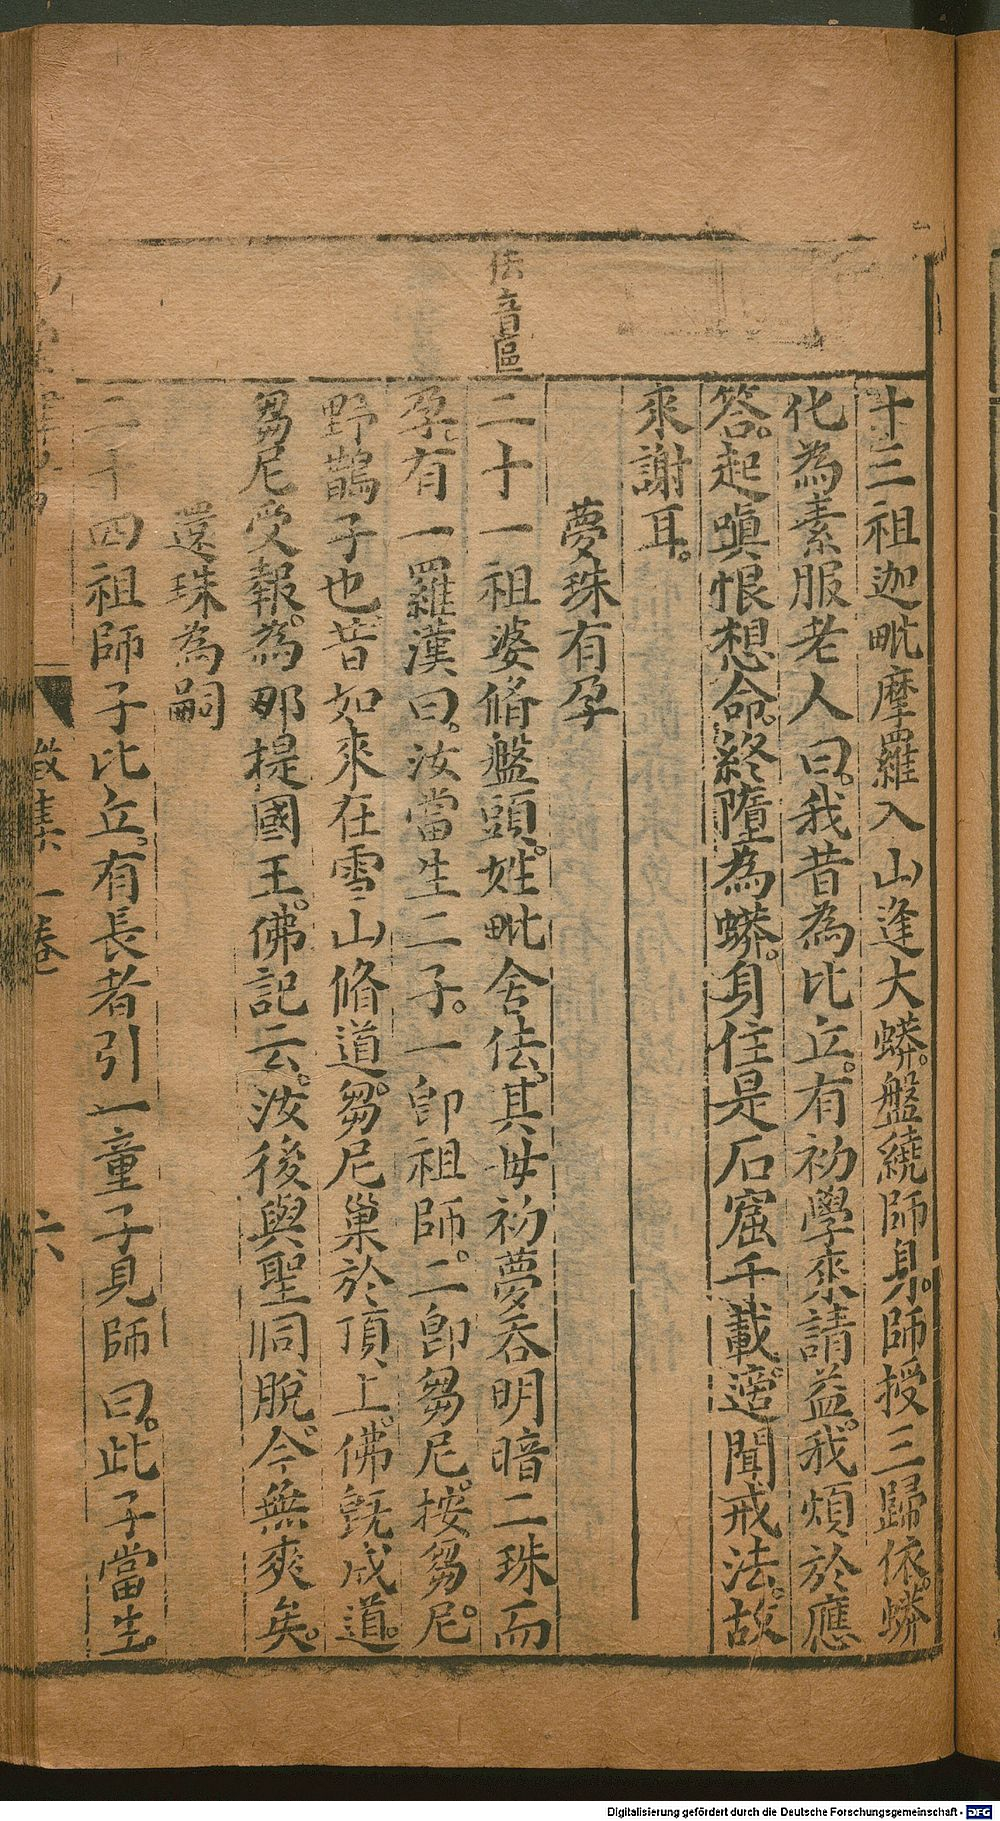 佉音區
十三祖迦毗摩羅入山逢大蟒。盤繞師身。師授三歸依。蟒
化為素服老人曰。我昔為比丘。有初學來請益。我煩於應
答。起嗔恨想。命終墮為蟒。身住是石窟千載。適聞戒法。故
來謝耳。
夢珠有孕
二十一祖婆脩盤頭。姓毗舍佉。其母初夢吞明暗二珠而
孕。有一羅漢曰。汝當生二子。一即祖師。二即芻尼。按芻尼。
野鵲子也。昔如來在雪山脩道。芻尼巢於頂上。佛旣成道。
芻尼受報。為那提國王。佛記云。汝後與聖同脫。今無爽矣。
還珠為嗣
二十四祖師子比丘。有長者引一童子見師曰。此子當生。
一卷
六
Digitalisierung gefördert durch die Deutsche Forschungsgemeinschaft - DFG